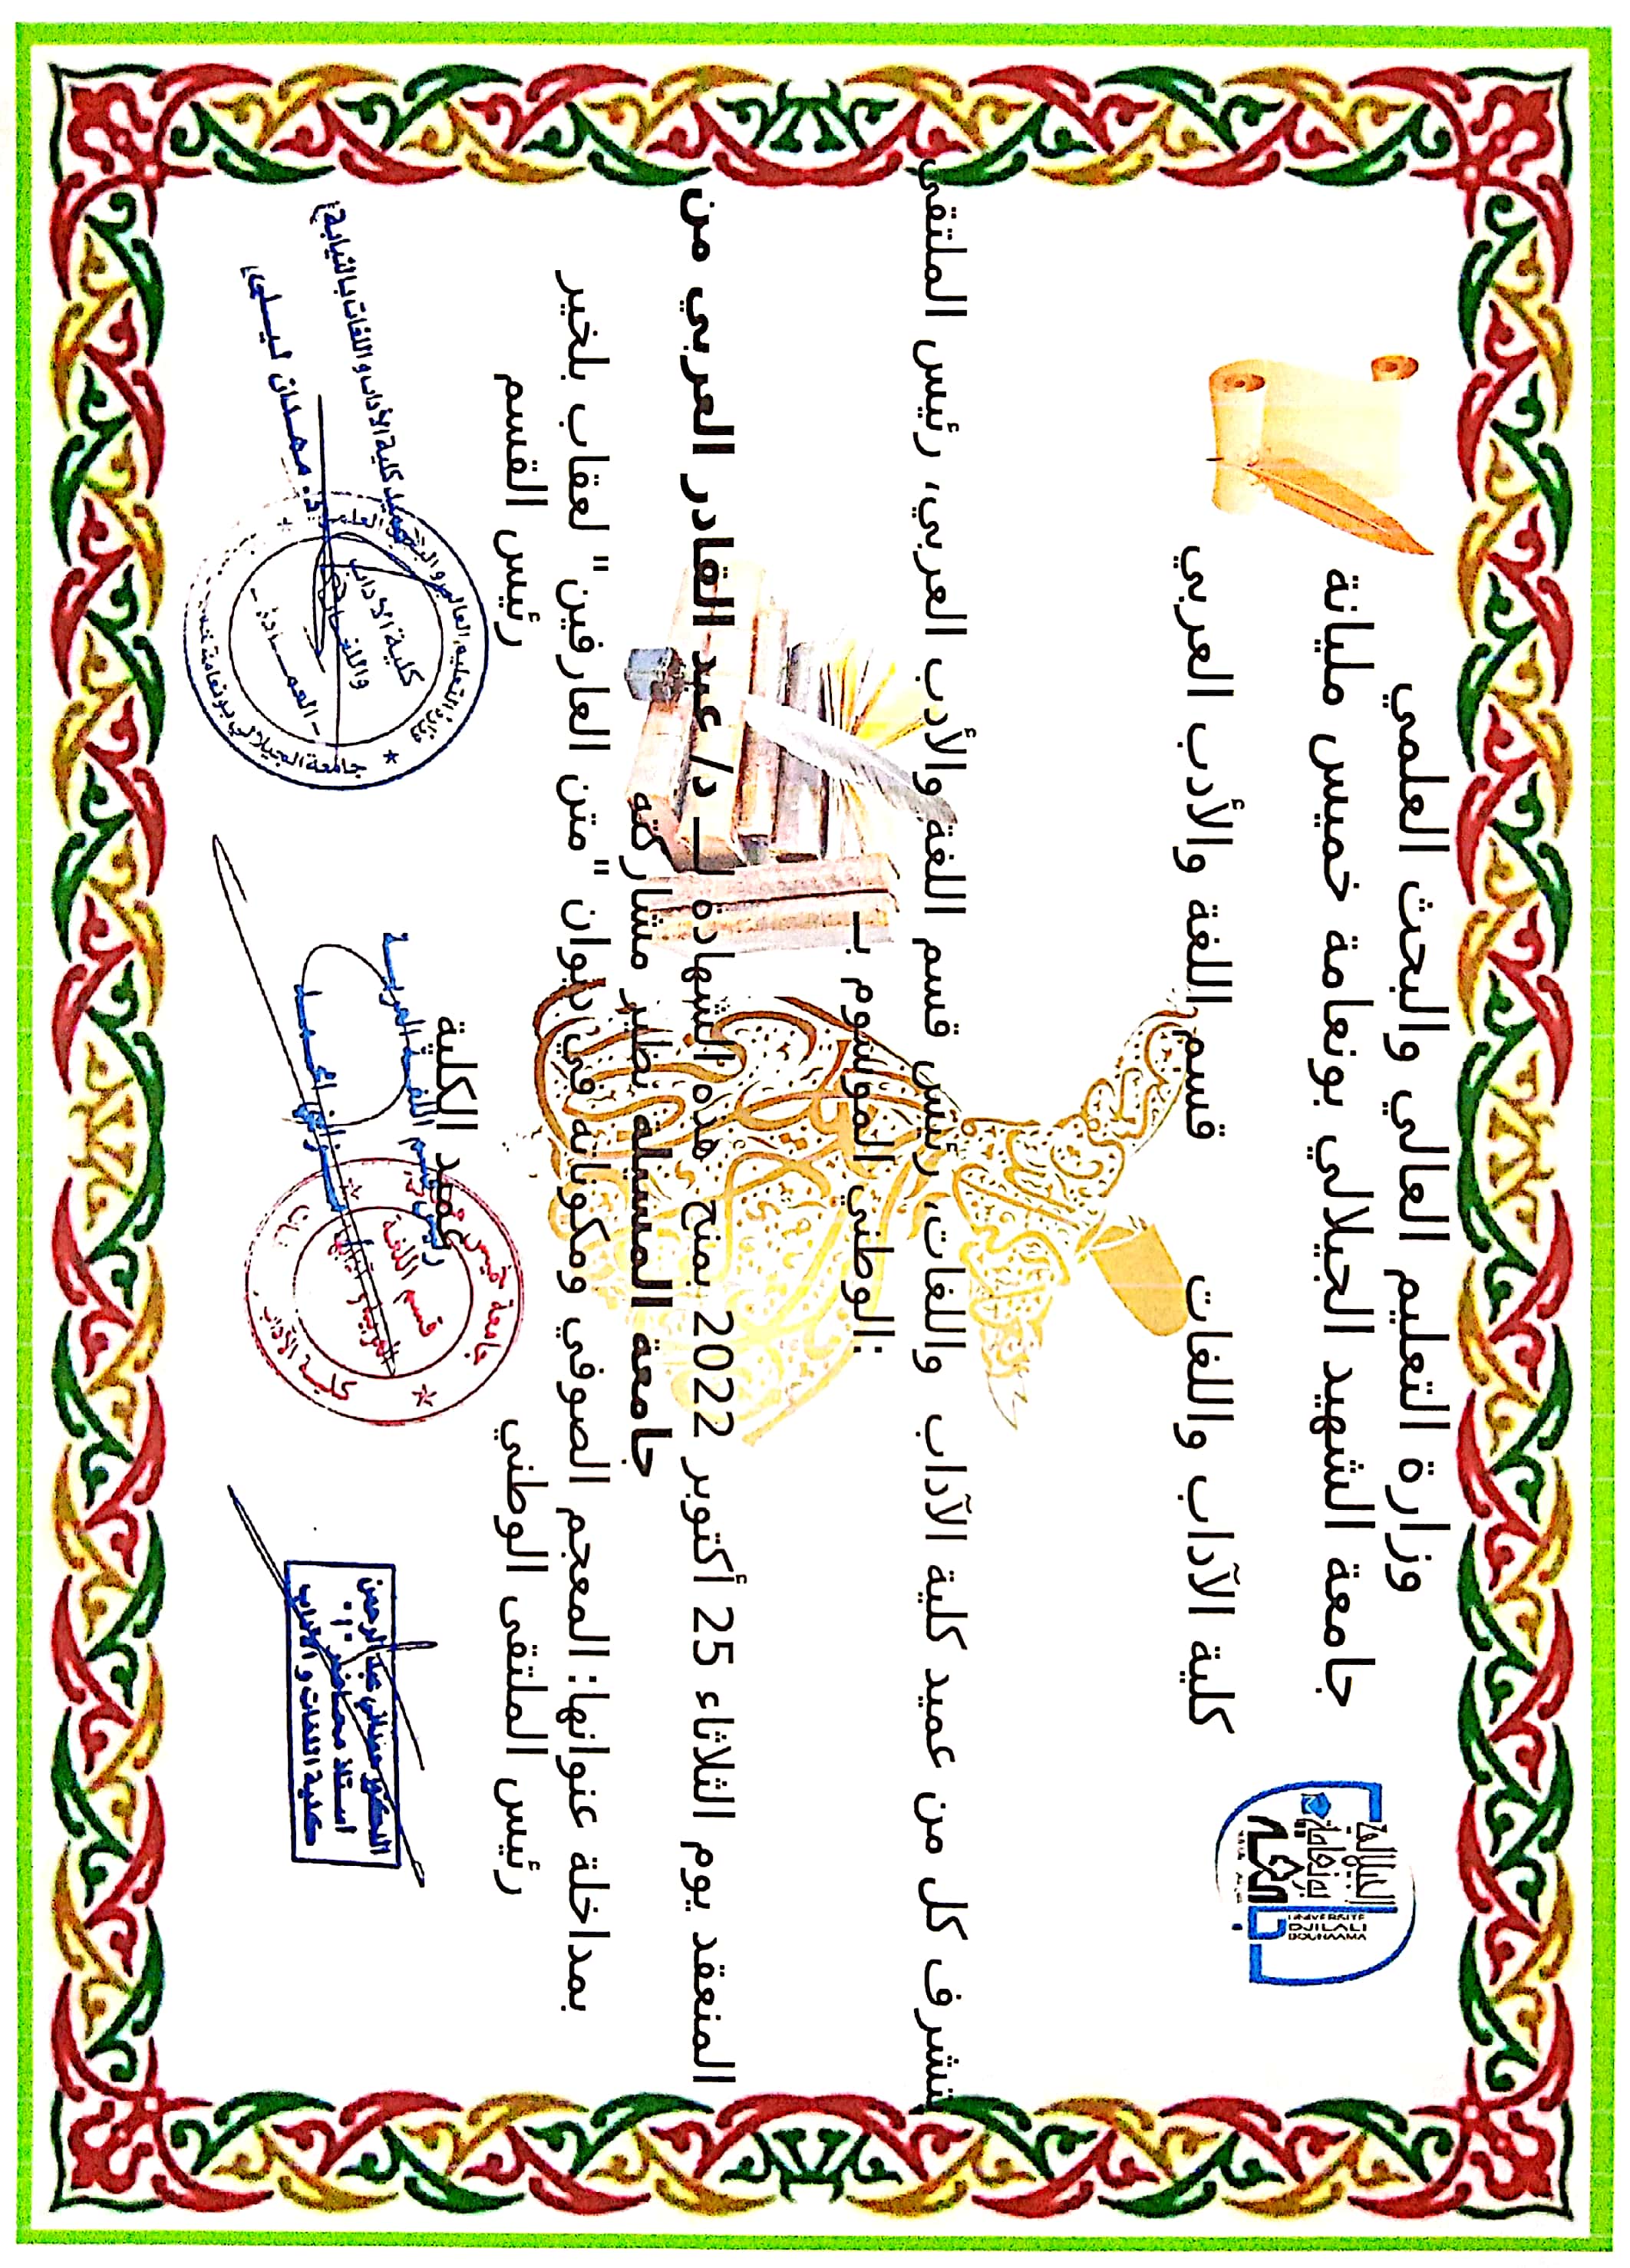 وزارة التعليم العالي والبحث العلمي
جامعة الشهيد الجيلالي بونعامة خميس مليانة
كلية الآداب واللغات قسم اللغة والأدب العربي
الجيلالي
بونعامة
UNIVERSITE
DJILALI
BOUNAAMA
يتشرف كل من عميد كلية الآداب واللغات، رئيس قسم اللغة والأدب العربي، رئيس الملتقى
الوطني الموسوم بـ:
المنعقد يوم الثلاثاء 25 أكتوبر 2022 بمنح هذه الشهادة لـ د/ عبد القادر العربي من
جامعة المسيلة نظير مشاركته
بمداخلة عنوانها: المعجم الصوفي ومكوناته في ديوان "متن العارفين" لعقاب بلخير
رئيس الملتقى الوطني رئيس القسم
عميد الكلية
عبد الرحمن
أستاذ محاضر
كلية اللغات والآداب
جامعة خميس
قسم اللغة
كلية الآداب
عميد كلية الآداب واللغات بالنيابة
د. مهدان ليلى
وزارة التعليم العالي و البحث العلمي
جامعة الجيلالي بونعامة خميس
كلية الآداب
واللغات
- العمادة -